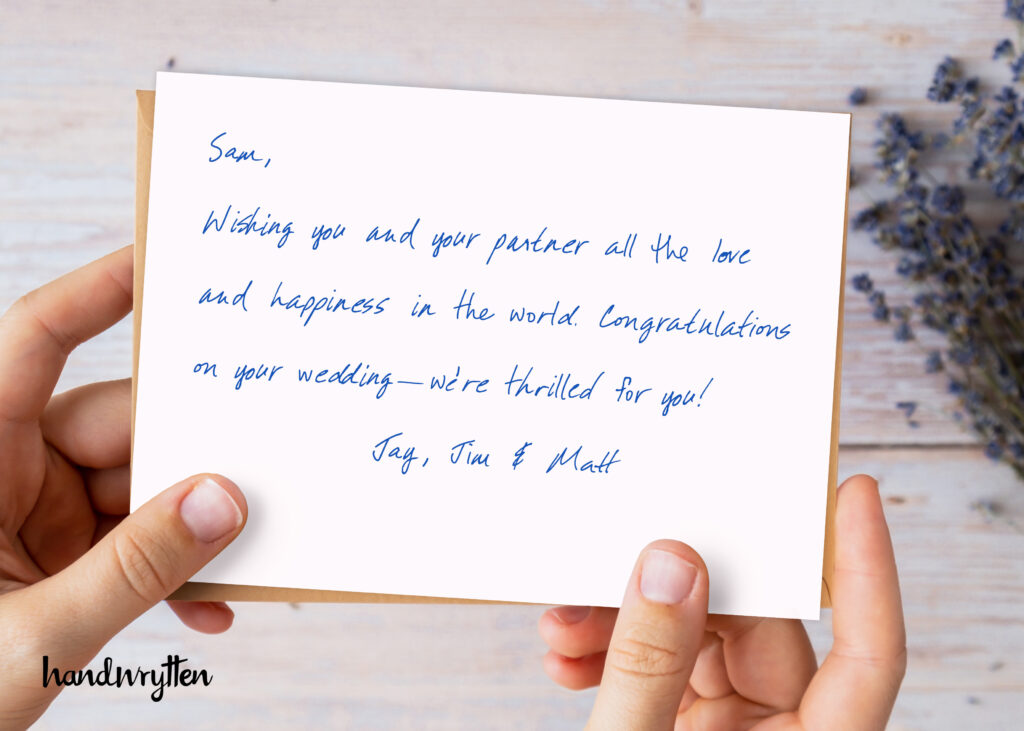 Sam,
Wishing you and your partner all the love
and happiness in the world. Congratulations
on your wedding—we're thrilled for you!
Jay, Jim & Matt
handwrytten